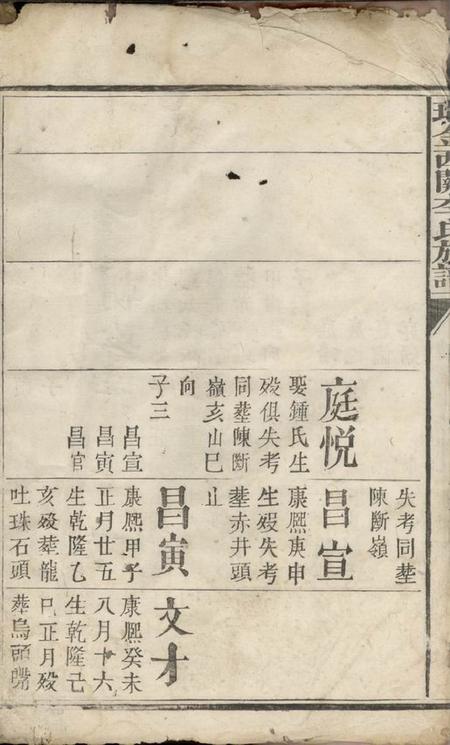 瑞金西關李氏族譜
失考同塟
陳斷嶺
庭悅
娶鍾氏生
殁俱失考
同塟陳斷
嶺亥山巳
向
子三
昌宣
昌寅
昌官
昌宣
康熙庚申
生殁失考
塟赤井頭
止
昌寅
康熙甲子
正月廿五
生乾隆乙
亥殁葬龍
吐珠石頭
文才
康熙癸未
八月十六
生乾隆己
巳正月殁
葬烏頭嘴